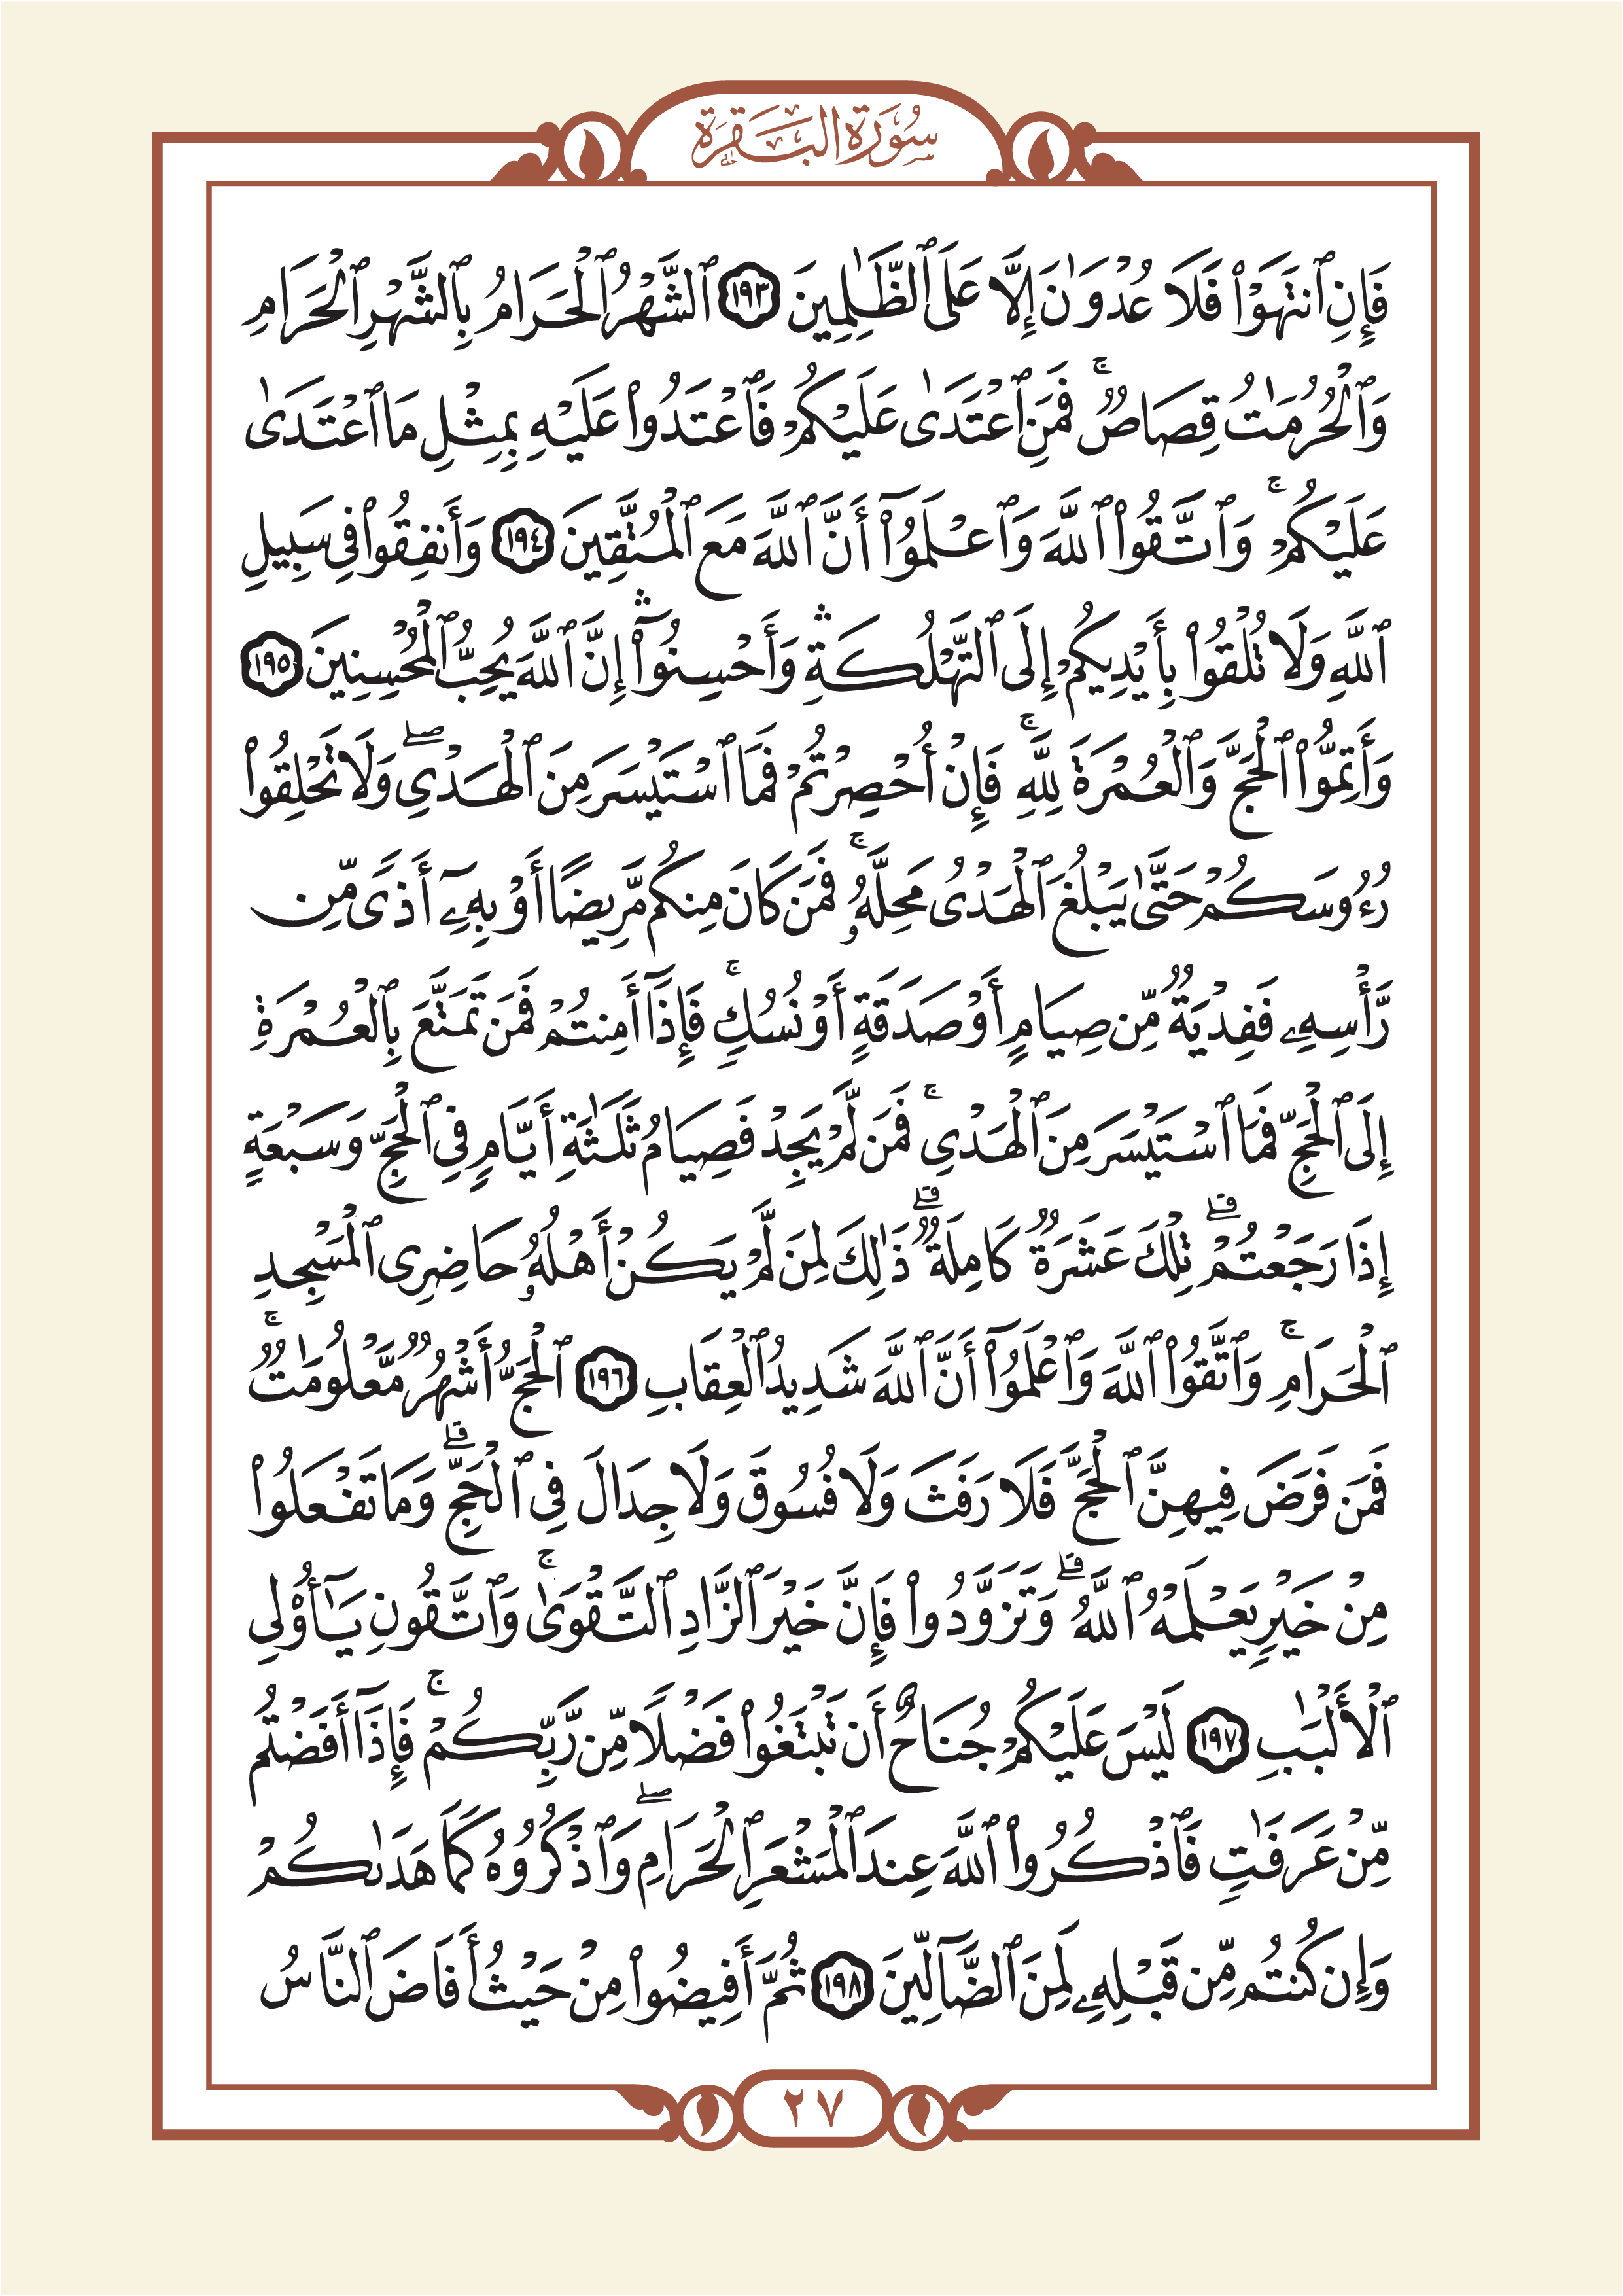 سُورَةُ البَقَرَةِ
فَإِنِ ٱنتَهَوۡاْ فَلَا عُدۡوَٰنَ إِلَّا عَلَى ٱلظَّٰلِمِينَ ١٩٣ ٱلشَّهۡرُ ٱلۡحَرَامُ بِٱلشَّهۡرِ ٱلۡحَرَامِ
وَٱلۡحُرُمَٰتُ قِصَاصٞۚ فَمَنِ ٱعۡتَدَىٰ عَلَيۡكُمۡ فَٱعۡتَدُواْ عَلَيۡهِ بِمِثۡلِ مَا ٱعۡتَدَىٰ
عَلَيۡكُمۡۚ وَٱتَّقُواْ ٱللَّهَ وَٱعۡلَمُوٓاْ أَنَّ ٱللَّهَ مَعَ ٱلۡمُتَّقِينَ ١٩٤ وَأَنفِقُواْ فِي سَبِيلِ
ٱللَّهِ وَلَا تُلۡقُواْ بِأَيۡدِيكُمۡ إِلَى ٱلتَّهۡلُكَةِ ۛ وَأَحۡسِنُوٓاْ ۛ إِنَّ ٱللَّهَ يُحِبُّ ٱلۡمُحۡسِنِينَ ١٩٥
وَأَتِمُّواْ ٱلۡحَجَّ وَٱلۡعُمۡرَةَ لِلَّهِۚ فَإِنۡ أُحۡصِرۡتُمۡ فَمَا ٱسۡتَيۡسَرَ مِنَ ٱلۡهَدۡيِۖ وَلَا تَحۡلِقُواْ
رُءُوسَكُمۡ حَتَّىٰ يَبۡلُغَ ٱلۡهَدۡيُ مَحِلَّهُۥۚ فَمَن كَانَ مِنكُم مَّرِيضًا أَوۡ بِهِۦٓ أَذٗى مِّن
رَّأۡسِهِۦ فَفِدۡيَةٞ مِّن صِيَامٍ أَوۡ صَدَقَةٍ أَوۡ نُسُكٖۚ فَإِذَآ أَمِنتُمۡ فَمَن تَمَتَّعَ بِٱلۡعُمۡرَةِ
إِلَى ٱلۡحَجِّ فَمَا ٱسۡتَيۡسَرَ مِنَ ٱلۡهَدۡيِۚ فَمَن لَّمۡ يَجِدۡ فَصِيَامُ ثَلَٰثَةِ أَيَّامٖ فِي ٱلۡحَجِّ وَسَبۡعَةٍ
إِذَا رَجَعۡتُمۡۗ تِلۡكَ عَشَرَةٞ كَامِلَةٞۗ ذَٰلِكَ لِمَن لَّمۡ يَكُنۡ أَهۡلُهُۥ حَاضِرِي ٱلۡمَسۡجِدِ
ٱلۡحَرَامِۚ وَٱتَّقُواْ ٱللَّهَ وَٱعۡلَمُوٓاْ أَنَّ ٱللَّهَ شَدِيدُ ٱلۡعِقَابِ ١٩٦ ٱلۡحَجُّ أَشۡهُرٞ مَّعۡلُومَٰتٞۚ
فَمَن فَرَضَ فِيهِنَّ ٱلۡحَجَّ فَلَا رَفَثَ وَلَا فُسُوقَ وَلَا جِدَالَ فِي ٱلۡحَجِّۗ وَمَا تَفۡعَلُواْ
مِنۡ خَيۡرٖ يَعۡلَمۡهُ ٱللَّهُۗ وَتَزَوَّدُواْ فَإِنَّ خَيۡرَ ٱلزَّادِ ٱلتَّقۡوَىٰۚ وَٱتَّقُونِ يَٰٓأُوْلِي
ٱلۡأَلۡبَٰبِ ١٩٧ لَيۡسَ عَلَيۡكُمۡ جُنَاحٌ أَن تَبۡتَغُواْ فَضۡلٗا مِّن رَّبِّكُمۡۚ فَإِذَآ أَفَضۡتُم
مِّنۡ عَرَفَٰتٖ فَٱذۡكُرُواْ ٱللَّهَ عِندَ ٱلۡمَشۡعَرِ ٱلۡحَرَامِۖ وَٱذۡكُرُوهُ كَمَا هَدَىٰكُمۡ
وَإِن كُنتُم مِّن قَبۡلِهِۦ لَمِنَ ٱلضَّآلِّينَ ١٩٨ ثُمَّ أَفِيضُواْ مِنۡ حَيۡثُ أَفَاضَ ٱلنَّاسُ
٢٧